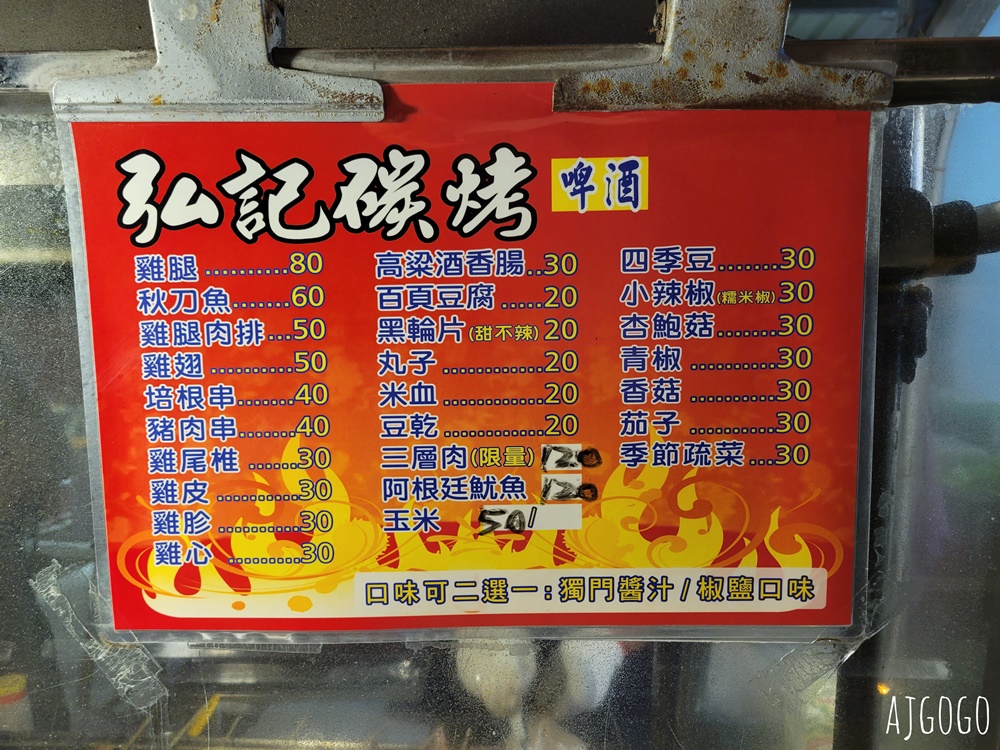 弘記碳烤 啤酒
雞腿..........80
秋刀魚.......60
雞腿肉排...50
雞翅..........50
培根串.......40
豬肉串.......40
雞尾椎......30
雞皮..........30
雞胗..........30
雞心.........30
高粱酒香腸..30
百頁豆腐.....20
黑輪片(甜不辣)20
丸子............20
米血............20
豆乾............20
三層肉(限量)120
阿根廷魷魚 120
玉米 50/
四季豆.......30
小辣椒(糯米椒)30
杏鮑菇.......30
青椒..........30
香菇..........30
茄子..........30
季節疏菜...30
口味可二選一:獨門醬汁/椒鹽口味
AJGOGO